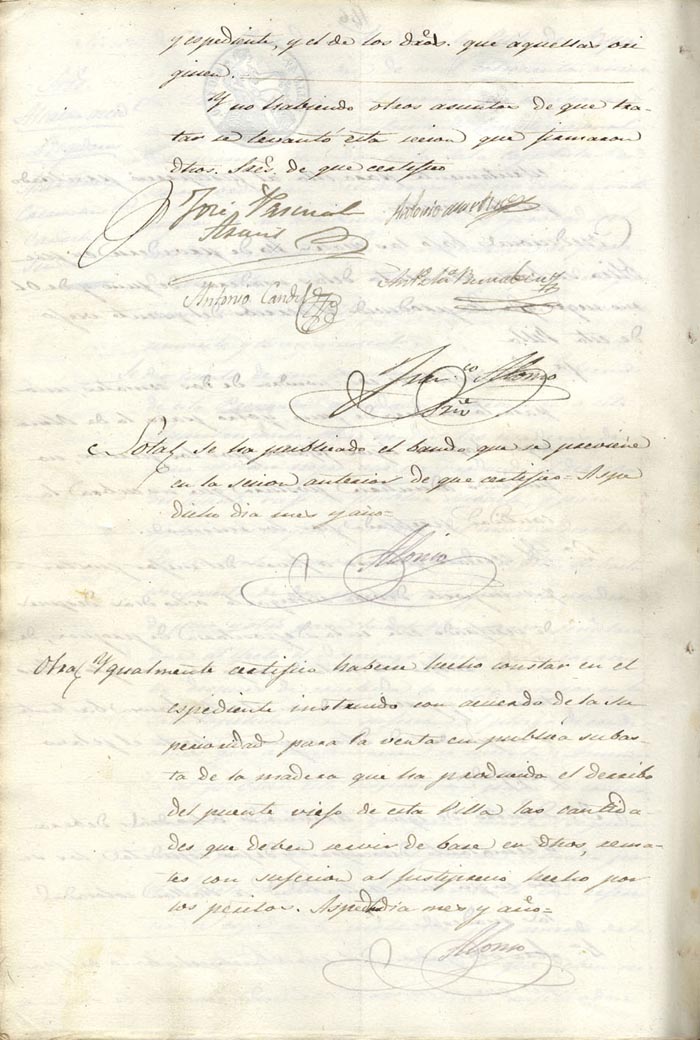 y espediente, y el de los dros. que aquellas ori
ginen.
Y no habiendo otros asuntos de que tra-
tar se levantó esta sesion que firmaron
dhos. Sres. de que certifico
José Pascual
Antonio
Antonio Candel
Franco Alonso
Srio
Nota Se ha publicado el bando que se previene
en la sesion anterior de que certifico = Aspe
dicho dia mes y año =
Alonso
Otra Ygualmente certifico haberse hecho constar en el
espediente instruido con acuerdo de la Su
perioridad para la venta en publica subas-
ta de la madera que ha producido el derribo
del puente viejo de esta Villa las cantida
des que deben servir de base en dhos. rema-
tes con sugecion al justiprecio hecho por
los peritos. Aspe dia mes y año =
Alonso